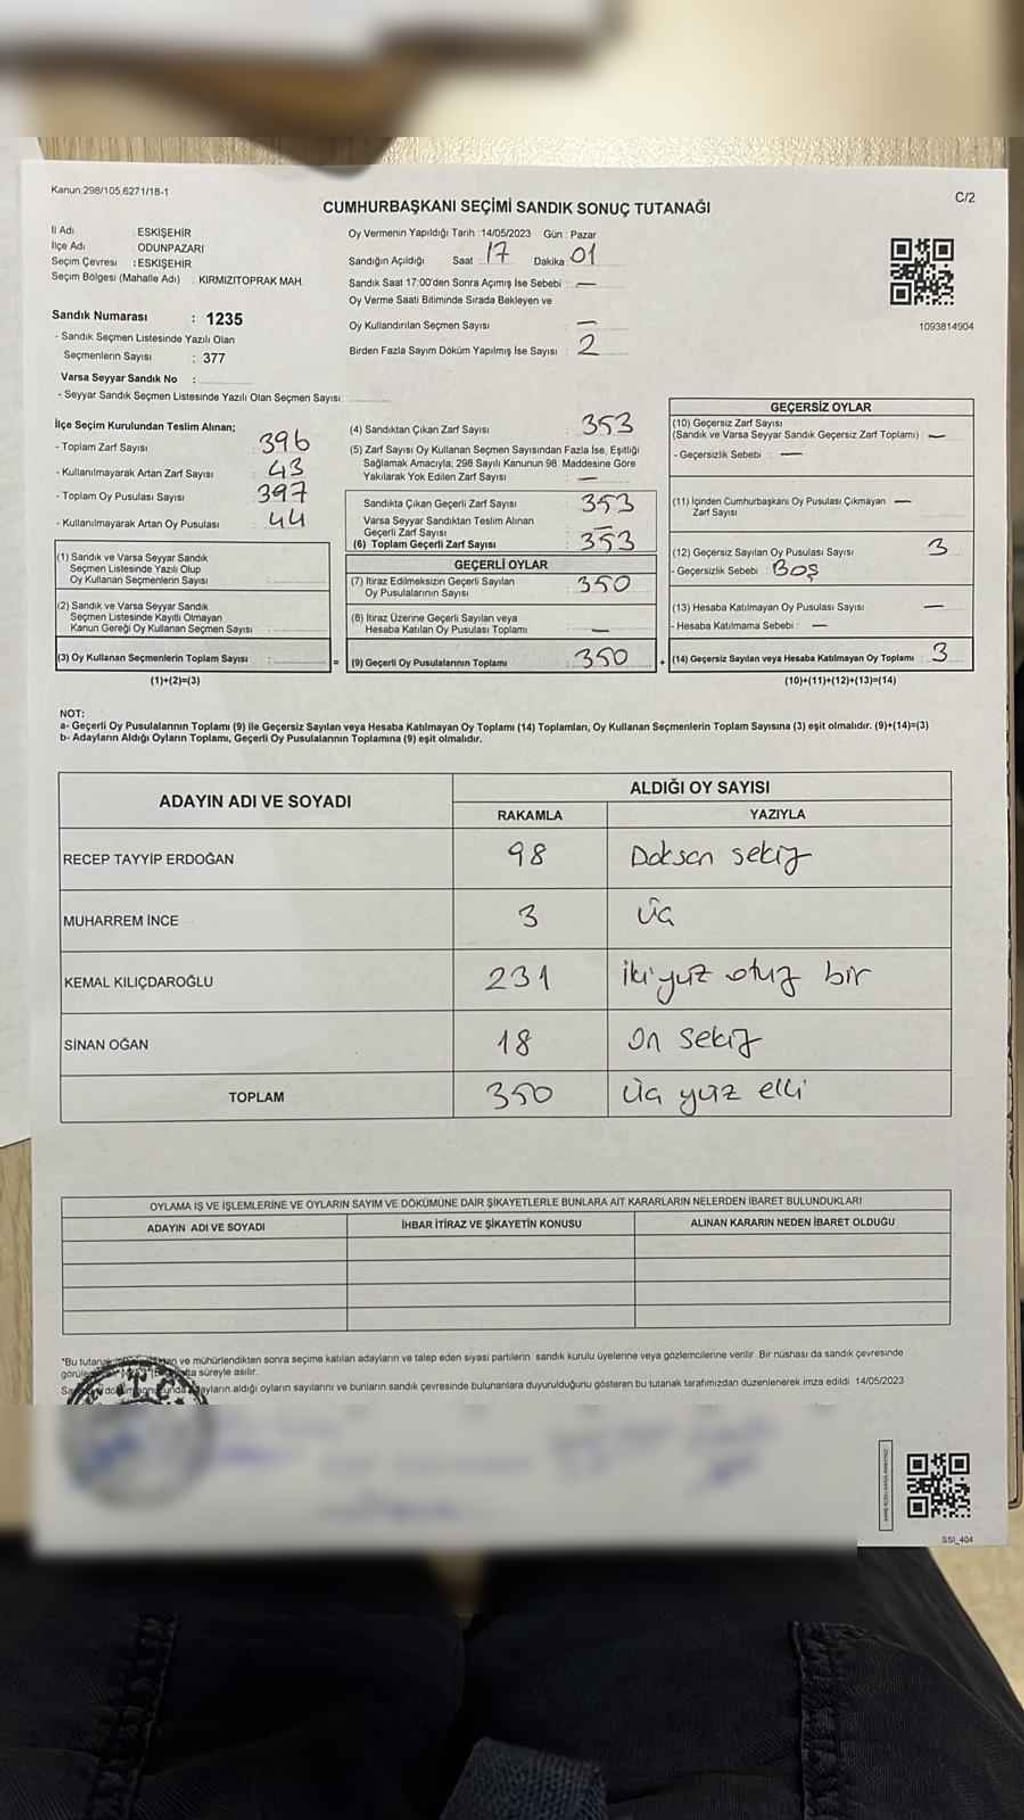 Kanun:298/105,6271/18-1
C/2
CUMHURBAŞKANI SEÇİMİ SANDIK SONUÇ TUTANAĞI
İl Adı ESKIŞEHİR
İlçe Adı ODUNPAZARI
Seçim Çevresi : ESKİŞEHİR
Seçim Bölgesi (Mahalle Adı) : KIRMIZITOPRAK MAH.
Sandık Numarası : 1235
- Sandık Seçmen Listesinde Yazılı Olan
Seçmenlerin Sayısı : 377
Varsa Seyyar Sandık No :
- Seyyar Sandık Seçmen Listesinde Yazılı Olan Seçmen Sayısı:
Oy Vermenin Yapıldığı Tarih :14/05/2023 Gün : Pazar
Sandığın Açıldığı Saat : 17 Dakika : 01
Sandık Saat 17:00'den Sonra Açımış İse Sebebi : —
Oy Verme Saati Bitiminde Sırada Bekleyen ve
Oy Kullandırılan Seçmen Sayısı : —
Birden Fazla Sayım Döküm Yapılmış İse Sayısı : 2
1093814904
İlçe Seçim Kurulundan Teslim Alınan;
- Toplam Zarf Sayısı : 396
- Kullanılmayarak Artan Zarf Sayısı : 43
- Toplam Oy Pusulası Sayısı : 397
- Kullanılmayarak Artan Oy Pusulası : 44
(1) Sandık ve Varsa Seyyar Sandık
Seçmen Listesinde Yazılı Olup
Oy Kullanan Seçmenlerin Sayısı :
(2) Sandık ve Varsa Seyyar Sandık
Seçmen Listesinde Kayıtlı Olmayan
Kanun Gereği Oy Kullanan Seçmen Sayısı :
(3) Oy Kullanan Seçmenlerin Toplam Sayısı :
(1)+(2)=(3)
(4) Sandıktan Çıkan Zarf Sayısı : 353
(5) Zarf Sayısı Oy Kullanan Seçmen Sayısından Fazla İse, Eşitliği
Sağlamak Amacıyla, 298 Sayılı Kanunun 98. Maddesine Göre
Yakılarak Yok Edilen Zarf Sayısı : —
Sandıkta Çıkan Geçerli Zarf Sayısı : 353
Varsa Seyyar Sandıktan Teslim Alınan
Geçerli Zarf Sayısı : —
(6) Toplam Geçerli Zarf Sayısı : 353
GEÇERLİ OYLAR
(7) İtiraz Edilmeksizin Geçerli Sayılan
Oy Pusulalarının Sayısı : 350
(8) İtiraz Üzerine Geçerli Sayılan veya
Hesaba Katılan Oy Pusulası Toplamı : —
= (9) Geçerli Oy Pusulalarının Toplamı : 350 +
GEÇERSİZ OYLAR
(10) Geçersiz Zarf Sayısı
(Sandık ve Varsa Seyyar Sandık Geçersiz Zarf Toplamı) : —
- Geçersizlik Sebebi : —
(11) İçinden Cumhurbaşkanı Oy Pusulası Çıkmayan : —
Zarf Sayısı
(12) Geçersiz Sayılan Oy Pusulası Sayısı : 3
- Geçersizlik Sebebi : BOŞ
(13) Hesaba Katılmayan Oy Pusulası Sayısı : —
- Hesaba Katılmama Sebebi : —
(14) Geçersiz Sayılan veya Hesaba Katılmayan Oy Toplamı : 3
(10)+(11)+(12)+(13)=(14)
NOT:
a- Geçerli Oy Pusulalarının Toplamı (9) ile Geçersiz Sayılan veya Hesaba Katılmayan Oy Toplamı (14) Toplamları, Oy Kullanan Seçmenlerin Toplam Sayısına (3) eşit olmalıdır. (9)+(14)=(3)
b- Adayların Aldığı Oyların Toplamı, Geçerli Oy Pusulalarının Toplamına (9) eşit olmalıdır.
ADAYIN ADI VE SOYADI ALDIĞI OY SAYISI
RAKAMLA YAZIYLA
RECEP TAYYİP ERDOĞAN 98 Doksan sekiz
MUHARREM İNCE 3 üç
KEMAL KILIÇDAROĞLU 231 iki yüz otuz bir
SİNAN OĞAN 18 on sekiz
TOPLAM 350 üç yüz elli
OYLAMA İŞ VE İŞLEMLERİNE VE OYLARIN SAYIM VE DÖKÜMÜNE DAİR ŞİKAYETLERLE BUNLARA AİT KARARLARIN NELERDEN İBARET BULUNDUKLARI
ADAYIN ADI VE SOYADI İHBAR İTİRAZ VE ŞİKAYETİN KONUSU ALINAN KARARIN NEDEN İBARET OLDUĞU
*Bu ve mühürlendikten sonra seçime katılan adayların ve talep eden siyasi partilerin sandık kurulu üyelerine veya gözlemcilerine verilir. Bir nüshası da sandık çevresinde
süreyle asılır.
aldığı oyların sayılarını ve bunların sandık çevresinde bulunanlara duyurulduğunu gösteren bu tutanak tarafımızdan düzenlenerek imza edildi. 14/05/2023
T.C.
SSI_404